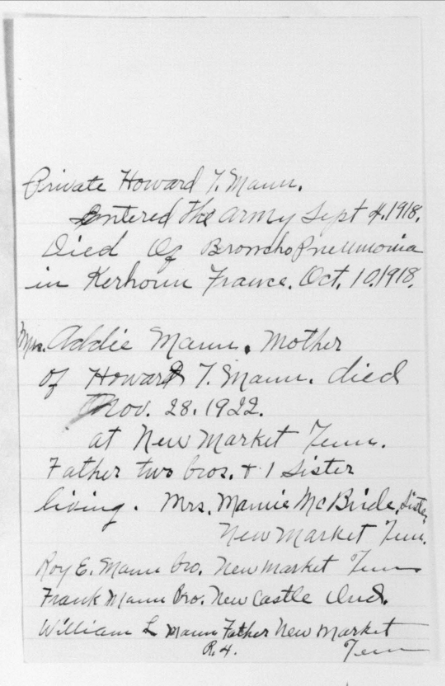 Private Howard T. Mann.
Entered the army Sept 4. 1918.
Died Of Broncho Pneumonia
in Kerhoun France. Oct. 10. 1918.
Mrs. Addie Mann. Mother
of Howard T. Mann. died
Nov. 28. 1922.
at New Market Tenn.
Father two bros. & 1 Sister
living. Mrs. Mamie McBride, Sister
New Market Tenn.
Roy E. Mann bro. New Market Tenn
Frank Mann Bro. New Castle Ind.
William L Mann Father New Market
R. 4. Tenn